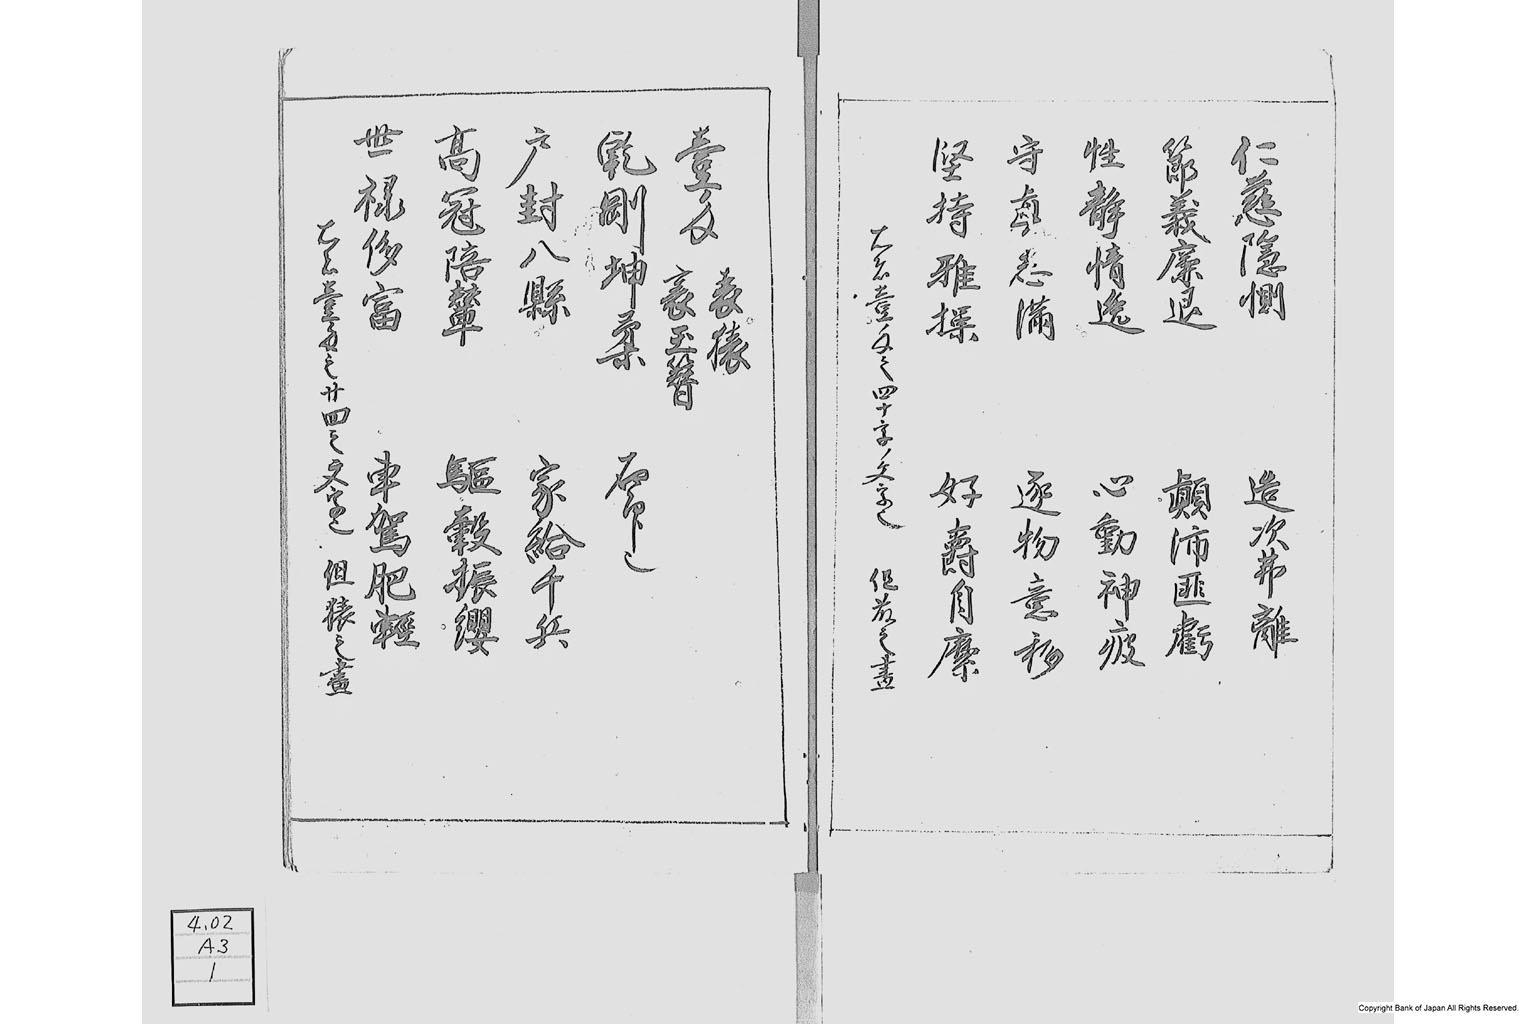 仁慈隠惻　造次弗離
節義廉退　顛沛匪虧
性静情逸　心動神疲
守真志満　逐物意移
堅持雅操　好爵自縻
四十字ノ文字也
壹匁
表猿
裏玉簪
乾剛坤柔
戸封八縣　家給千兵
高冠陪輦　驅轂振纓
世禄侈富　車駕肥軽
右者壹匁之廿四之文字也　但猿之畫
4.02
A3
1
Copyright Bank of Japan All Rights Reserved.